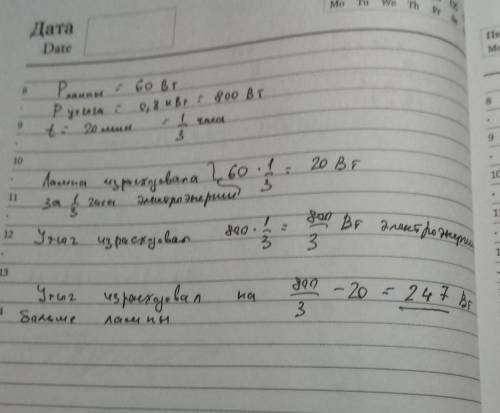 Mo Tu We Th
Fr
Дата
Date
8 Р лампы = 60 Вт
Р утюга = 0,8 кВт = 800 Вт
9 t = 20 мин = 1/3 часа
10
Лампа израсходовала } 60 · 1/3 = 20 Вт
11 за 1/3 часа электроэнергии
12 Утюг израсходовал 800 · 1/3 = 800/3 Вт электроэнергии
13
Утюг израсходовал на 800/3 - 20 = 247 Вт
больше лампы
8
9
10
1
1